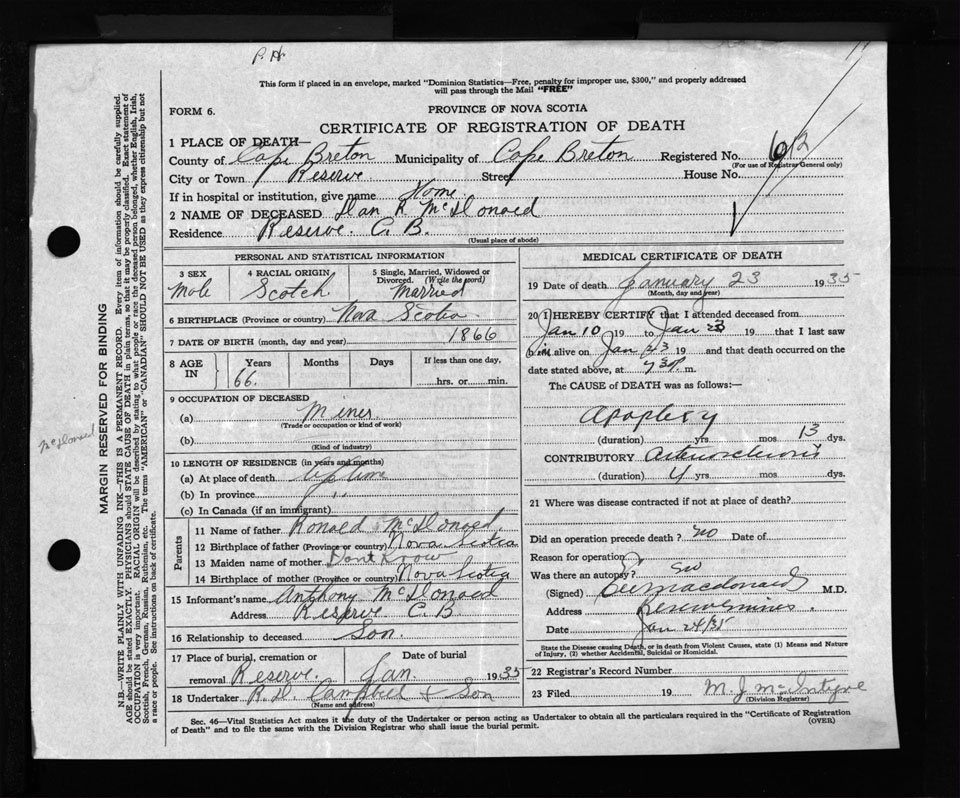 P. H.
This form if placed in an envelope, marked "Dominion Statistics—Free, penalty for improper use, $300," and properly addressed
will pass through the Mail "FREE"
FORM 6.
PROVINCE OF NOVA SCOTIA
CERTIFICATE OF REGISTRATION OF DEATH
1 PLACE OF DEATH—
County of Cape Breton Municipality of Cape Breton Registered No. 612
(For use of Registrar General only)
City or Town Reserve Street House No.
If in hospital or institution, give name Home
2 NAME OF DECEASED Dan R. McDonald
Residence Reserve. C. B.
(Usual place of abode)
PERSONAL AND STATISTICAL INFORMATION
3 SEX 4 RACIAL ORIGIN 5 Single, Married, Widowed or Divorced. (Write the word)
Male Scotch Married
6 BIRTHPLACE (Province or country) Nova Scotia
7 DATE OF BIRTH (month, day and year) 1866
8 AGE IN Years Months Days If less than one day,
66. hrs. or min.
9 OCCUPATION OF DECEASED
(a) Miner
(Trade or occupation or kind of work)
(b)
(Kind of industry)
10 LENGTH OF RESIDENCE (in years and months)
(a) At place of death life time
(b) In province " "
(c) In Canada (if an immigrant)
Parents
11 Name of father Ronald McDonald
12 Birthplace of father (Province or country) Nova Scotia
13 Maiden name of mother Dont Know
14 Birthplace of mother (Province or country) Nova Scotia
15 Informant's name Anthony McDonald
Address Reserve C. B
16 Relationship to deceased Son.
17 Place of burial, cremation or removal Reserve. Date of burial Jan. 1935
18 Undertaker R. D. Campbell & Son
(Name and address)
MEDICAL CERTIFICATE OF DEATH
19 Date of death January 23 1935
(Month, day and year)
20 I HEREBY CERTIFY that I attended deceased from
Jan 10 19 to Jan 23 19 that I last saw
him alive on Jan 23 19 and that death occurred on the
date stated above, at 7 30 P. m.
The CAUSE of DEATH was as follows:—
Apoplexy
(duration) yrs mos 13 dys.
CONTRIBUTORY Arteriosclerosis
(duration) 4 yrs mos dys.
21 Where was disease contracted if not at place of death?
Did an operation precede death? no Date of
Reason for operation
Was there an autopsy? no
(Signed) Macdonald M.D.
Address Reserve Mines.
Date Jan 24/35
State the Disease causing Death, or in death from Violent Causes, state (1) Means and Nature
of Injury, (2) whether Accidental, Suicidal or Homicidal.
22 Registrar's Record Number
23 Filed 19 M. J. McIntyre
(Division Registrar)
Sec. 46—Vital Statistics Act makes it the duty of the Undertaker or person acting as Undertaker to obtain all the particulars required in the "Certificate of Registration
of Death" and to file the same with the Division Registrar who shall issue the burial permit.
(OVER)
McDonald
MARGIN RESERVED FOR BINDING
N.B.—WRITE PLAINLY WITH UNFADING INK—THIS IS A PERMANENT RECORD. Every item of information should be carefully supplied.
AGE should be stated EXACTLY. PHYSICIANS should STATE CAUSE OF DEATH in plain terms, so that it may be properly classified. Exact statement of
OCCUPATION is very important. RACIAL ORIGIN will be described by stating to what people or race the deceased person belonged, whether English, Irish,
Scottish, French, German, Russian, Ruthenian, etc. The terms "AMERICAN" or "CANADIAN" SHOULD NOT BE USED as they express citizenship but not
a race or people. See instructions on back of certificate.